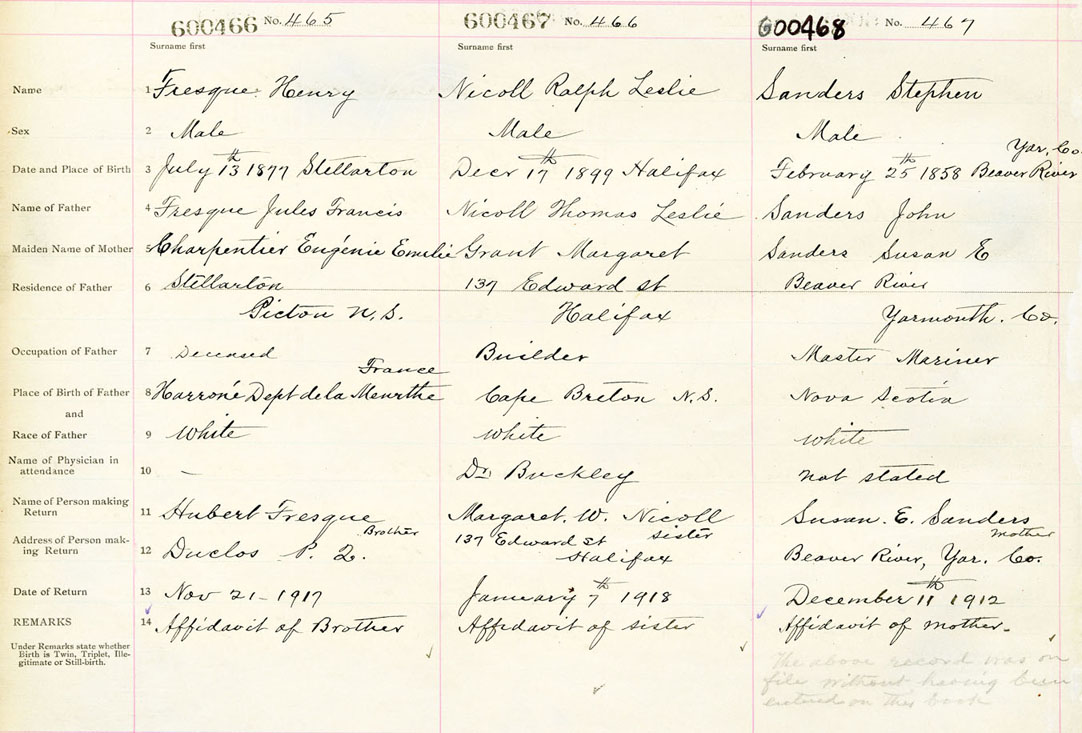 600466 No. 465 600467 No. 466 600468 No. 467
Surname first Surname first Surname first
Name 1 Fresque Henry Nicoll Ralph Leslie Sanders Stephen
Sex 2 Male Male Male
Yar. Co.
Date and Place of Birth 3 July 13th 1877 Stellarton Decr 17th 1899 Halifax February 25th 1858 Beaver River
Name of Father 4 Fresque Jules Francis Nicoll Thomas Leslie Sanders John
Maiden Name of Mother 5 Charpentier Eugénie Emilie Grant Margaret Sanders Susan E
Residence of Father 6 Stellarton 137 Edward St Beaver River
Pictou N.S. Halifax Yarmouth. Co.
Occupation of Father 7 Deceased Builder Master Mariner
France
Place of Birth of Father 8 Harroné Dept de la Meurthe Cape Breton N.S. Nova Scotia
and
Race of Father 9 White White White
Name of Physician in
attendance 10 – Dr Buckley not stated
Name of Person making
Return 11 Hubert Fresque Margaret. W. Nicoll Susan. E. Sanders
Brother sister mother
Address of Person mak-
ing Return 12 Duclos P. Q. 137 Edward St Halifax Beaver River, Yar. Co.
Date of Return 13 Nov 21 – 1917 January 7th 1918 December 11th 1912
REMARKS 14 Affidavit of Brother Affidavit of sister Affidavit of mother.
Under Remarks state whether
Birth is Twin, Triplet, Ille-
gitimate or Still-birth.
The above record was on
file without having been
entered on this book